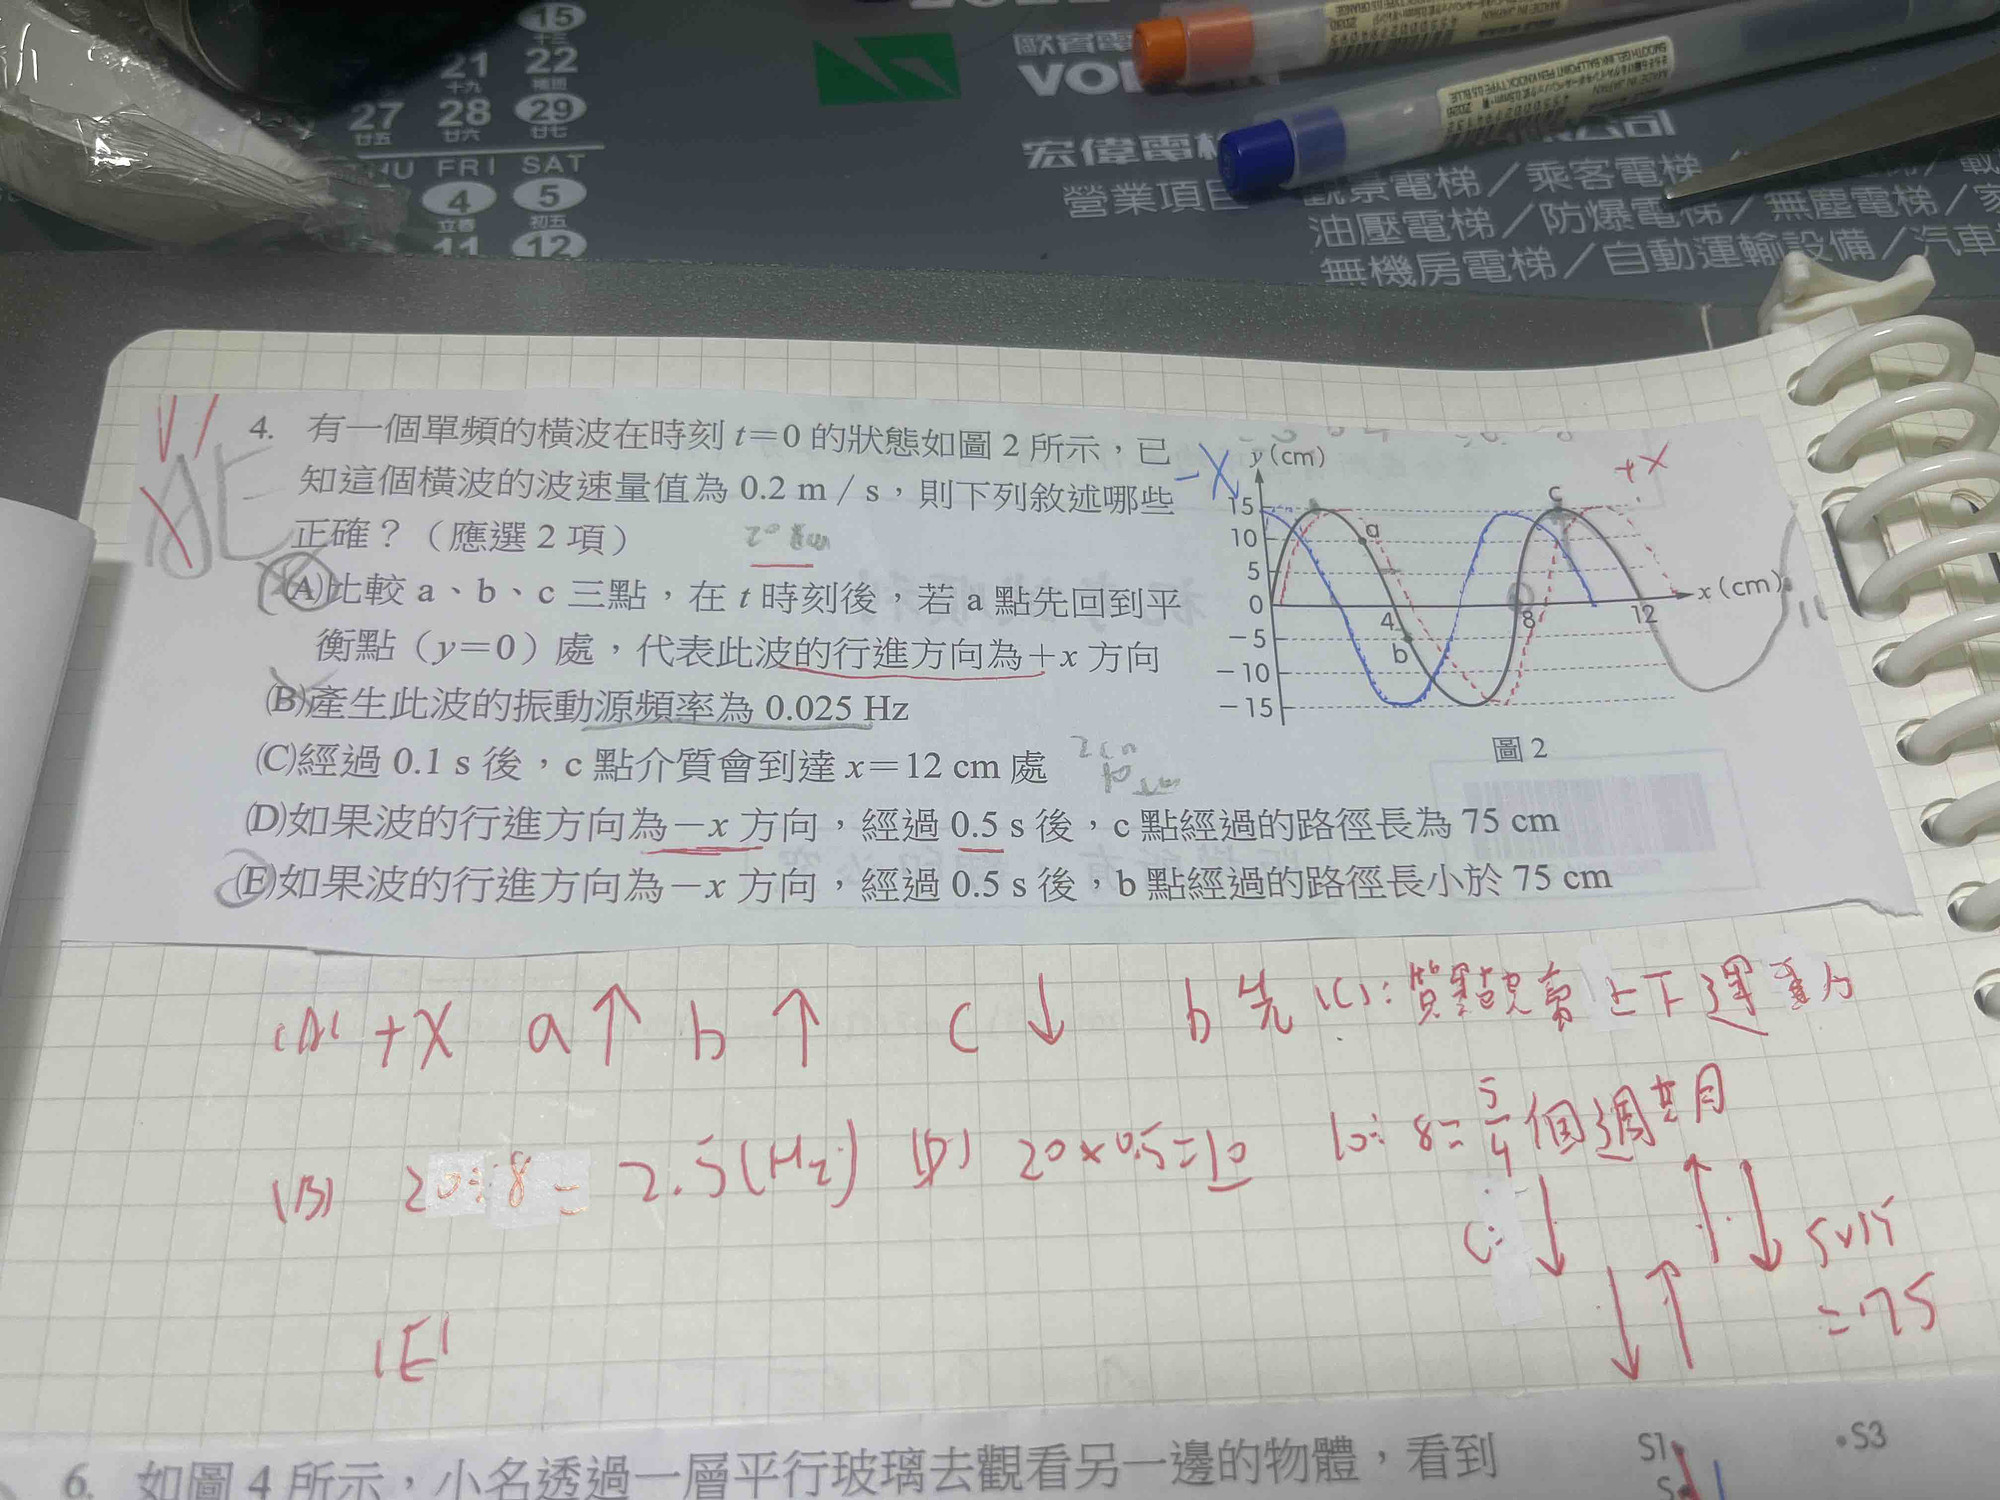 15
十三
21 22
十九 補班
27 28 29
廿五 廿六 廿七
HU FRI SAT
4 5
立春 初五
11 12
歐賓電
VO
宏偉電梯
營業項目 觀景電梯／乘客電梯
油壓電梯／防爆電梯／無塵電梯／家
無機房電梯／自動運輸設備／汽車
公司
MADE IN JAPAN
SMOOTH GEL INK BALLPOINT PEN KNOCK TYPE 0.5 BLUE
4. 有一個單頻的橫波在時刻 t=0 的狀態如圖 2 所示，已
知這個橫波的波速量值為 0.2 m / s，則下列敘述哪些
正確？（應選 2 項）
20 cm
AE
(A)比較 a、b、c 三點，在 t 時刻後，若 a 點先回到平
衡點（y=0）處，代表此波的行進方向為+x 方向
(B)產生此波的振動源頻率為 0.025 Hz
(C)經過 0.1 s 後，c 點介質會到達 x=12 cm 處
2cm
(D)如果波的行進方向為−x 方向，經過 0.5 s 後，c 點經過的路徑長為 75 cm
(E)如果波的行進方向為−x 方向，經過 0.5 s 後，b 點經過的路徑長小於 75 cm
-X y(cm) +X
15 c
10 a
5
0 4 8 12 x(cm)
−5 b
−10
−15
圖 2
(A) +X a↑ b↑ c↓ b先 (C): 質點只會上下運動
(B) 20÷8= 2.5(Hz) (D) 20×0.5=10 10÷8=5/4個週期
c: ↓ ↓ ↑ ↑ ↓ 5×15
=75
(E)
6. 如圖 4 所示，小名透過一層平行玻璃去觀看另一邊的物體，看到
S1 S3